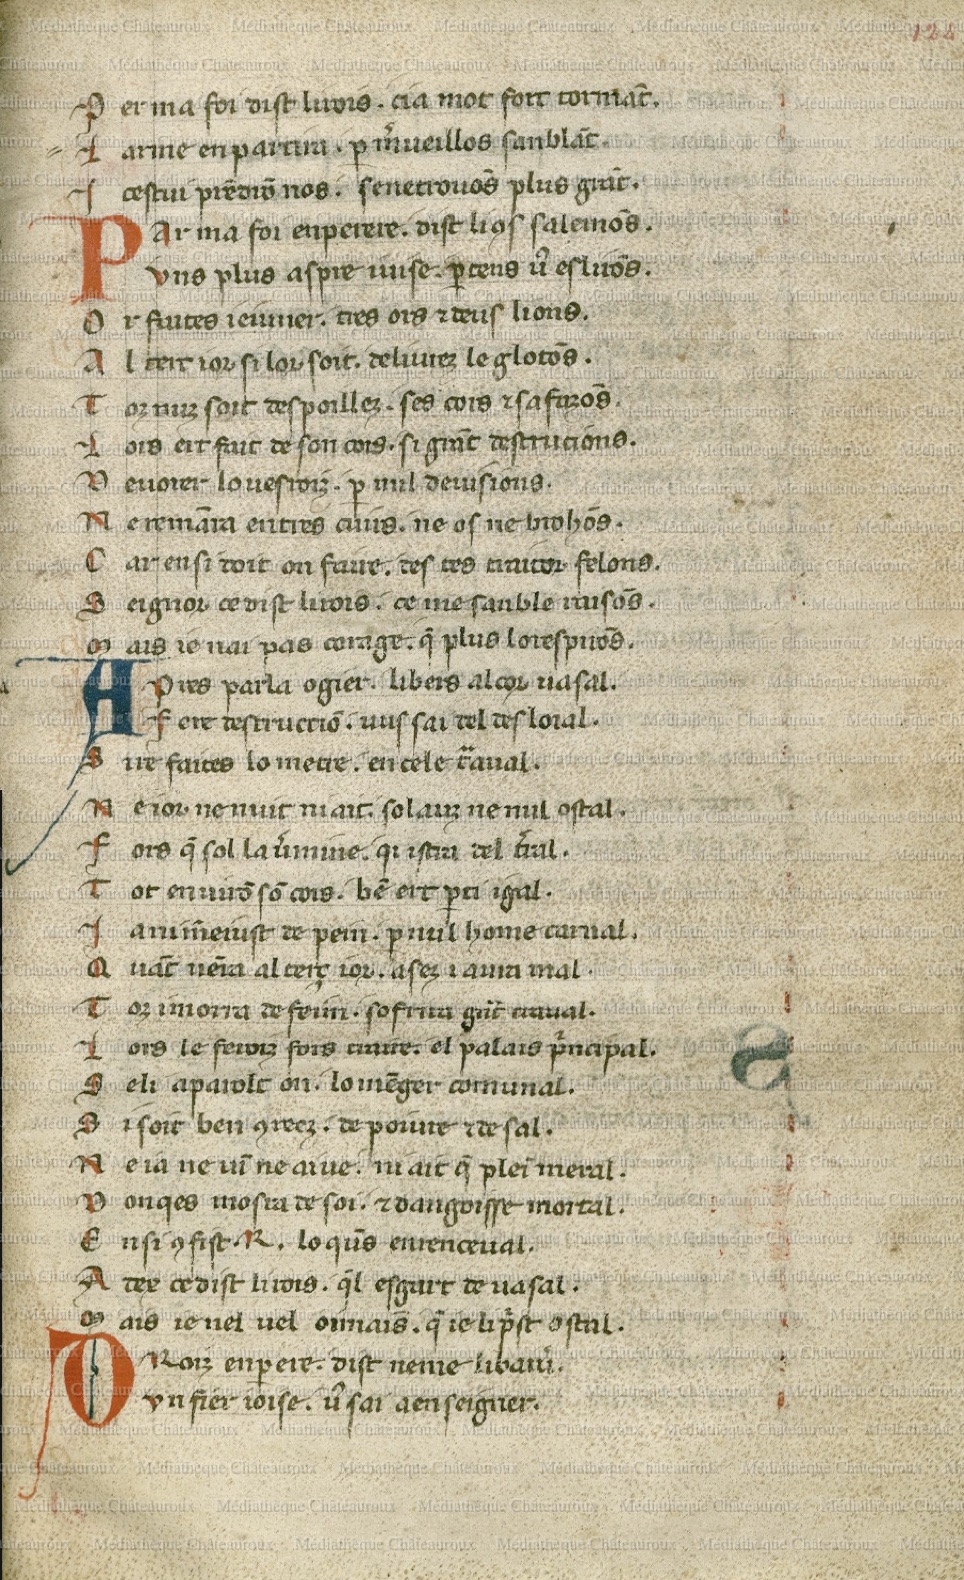 124
P er ma foi dist li rois. ci a mot fort tormāt.
L arme en partira. p m̄ueillos sanblāt.
I cestui prēdrō nos. se ne trouōs plus grāt.
P Ar ma foi enperere. dist li qs salemōs.
vns plus aspre iuise. p tens u̓ eslirōs.
O r faites ieuner. tres ors ⁊ deus lions.
A l terz ior si lor soit. deliurez le glotōs.
T oz nuz soit despoillez. ses cors ⁊ sa facōs.
L ors ert fait de son cors. si grāt destrucions.
D euorer lo uesroiz. p mil deuisions.
N e remāra entres cuirs. ne os ne brohōs.
C ar ensi doit on faire. des tes traitor felons.
S eignor ce dist li rois. ce me sanble raisōs.
M ais ie nai pas corage. q̄ plus lo respitōs.
A Pres parla ogier. li bers al cor uasal.
F ere destructiō. uus sai del desloial.
S ire faites lo metre. en cele t̄aual.
N e ior ne nuit ni ait. solauz ne nul ostal.
F ors q̄ sol la u̓mine. qi istra del t̓ral.
T ot enuirō sō cors. bē ert p ti igal.
I a ni m̄eiust de pein. p nul home carnal.
Q uāt uēra al terz ior. asez i aura mal.
T oz i morra de feim. sofrira grāt trauail.
L ors le feroiz fors traire. el palais p̓ncipal.
S eli aparolt on. lo mēger comunal.
S i soit ben ꝯreez. de poiure ⁊ de sal.
N e ia ne uī ne aiue. ni ait q̄ plei meral.
D onqes mora de soi. ⁊ dangoisse mortal.
E nsi ꝯfist .R. lo qūs en renceual.
A dex ce dist li rois. q̄l esgart de uasal.
M ais ie uel uel oimais. q̄ ie li p̄st ostal.
D Roiz enpere. dist neime li baiuī.
vn fier ioise. u̓ sai a enseigner.